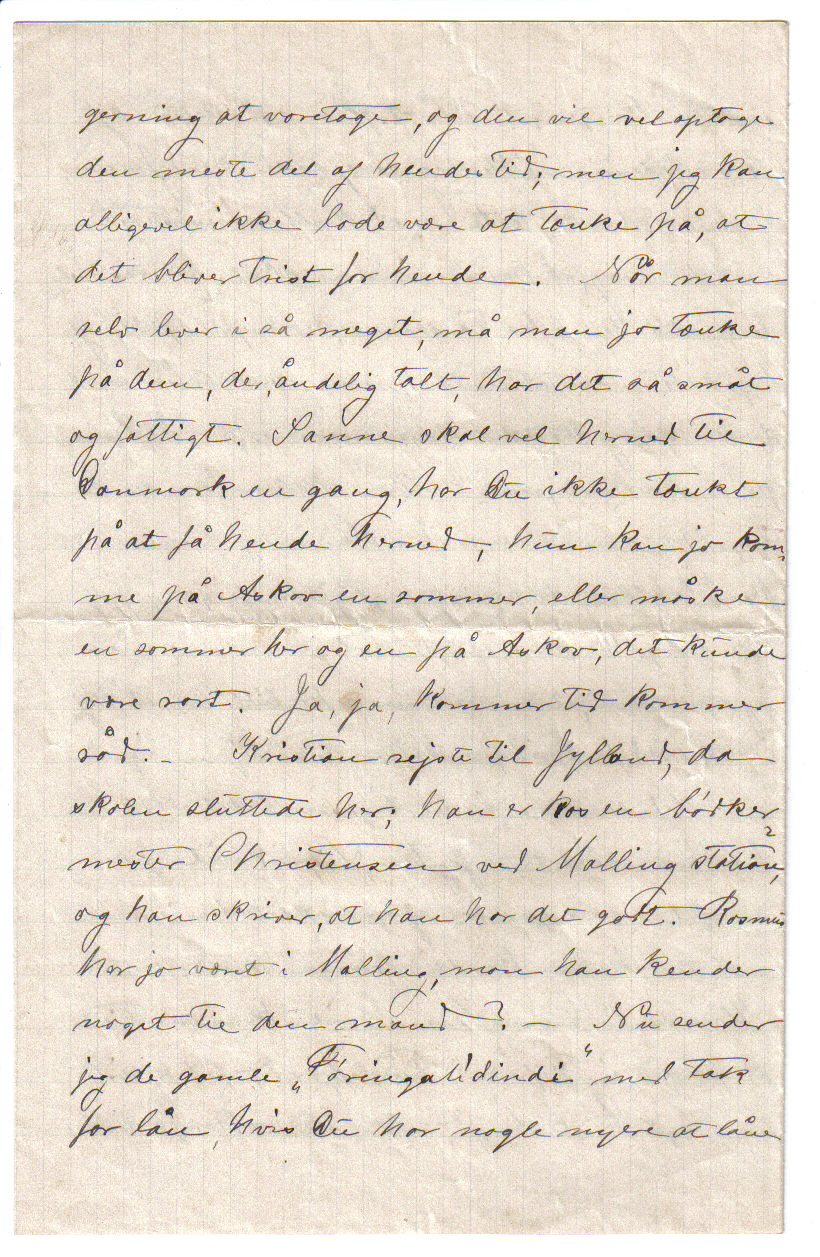 gerning at varetage, og den vil vel optage
den meste del af hendes tid; men jeg kan
alligevel ikke lade være at tænke på, at
det bliver trist for hende. Når man
selv lever i så meget, må man jo tænke
på dem, der, åndelig talt, har det så småt
og fattigt. Sanne skal vel herned til
Danmark en gang, har Du ikke tænkt
på at få hende herned, hun kan jo kom-
me på Askov en sommer, eller måske
en sommer her og en på Askov, det kunde
være rart. Ja, ja, kommer tid kommer
råd. – Kristian rejste til Jylland, da
skolen sluttede her; han er hos en bødker-
mester Christensen ved Malling station,
og han skriver, at han har det godt. Rasmus
har jo været i Malling, mon han kender
noget til den mand? – Nu sender
jeg de gamle „Føringatidindi" med tak
for lån, hvis Du har nogle nyere at låne